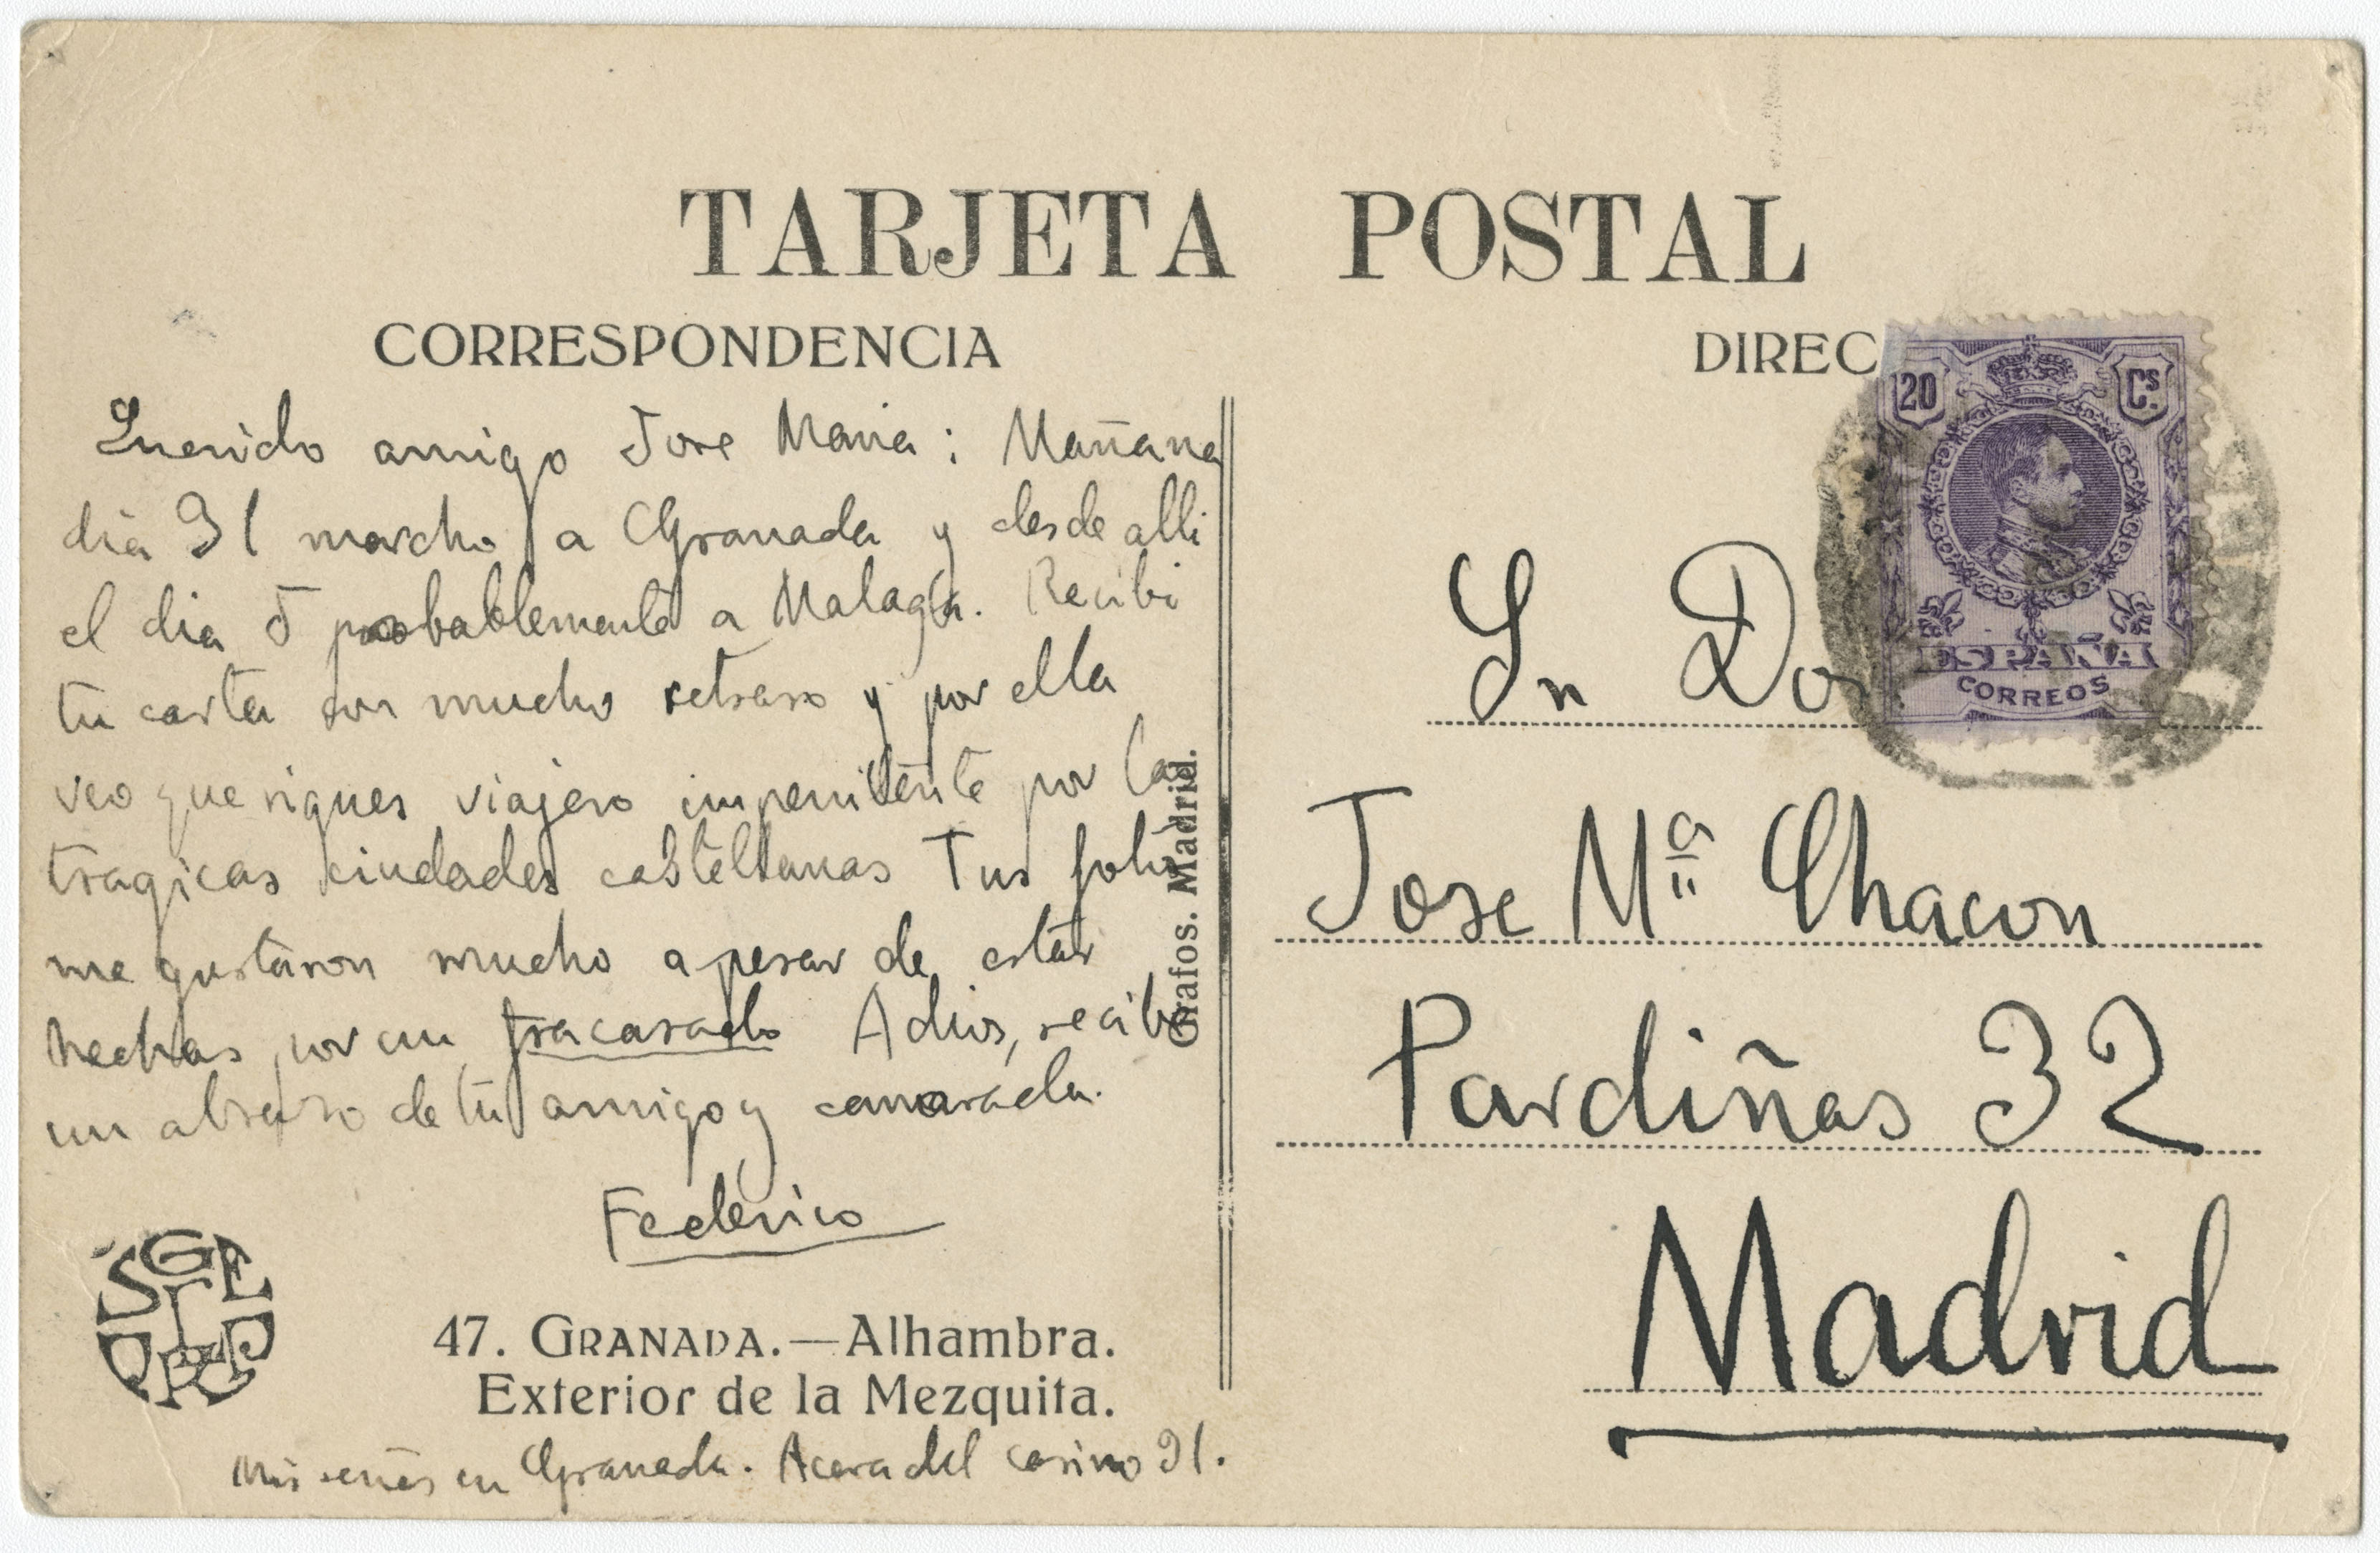 TARJETA POSTAL
CORRESPONDENCIA
Querido amigo Jose Maria: Mañana
dia 31 marcho a Granada y desde alli
el dia 5 probablemente a Malaga. Recibi
tu carta con mucho retraso y por ella
veo que sigues viajero impenitente por las
tragicas ciudades castellanas Tus fotos
me gustaron mucho apesar de estar
hechas por un fracasado Adios, recibe
un abrazo de tu amigo y camarada.
Federico
47. GRANADA.—Alhambra.
Exterior de la Mezquita.
Mis señas en Granada. Acera del casino 31.
Grafos. Madrid.
DIREC
20 Cs.
ESPAÑA
CORREOS
Sr Do
Jose Mª Chacon
Pardiñas 32
Madrid